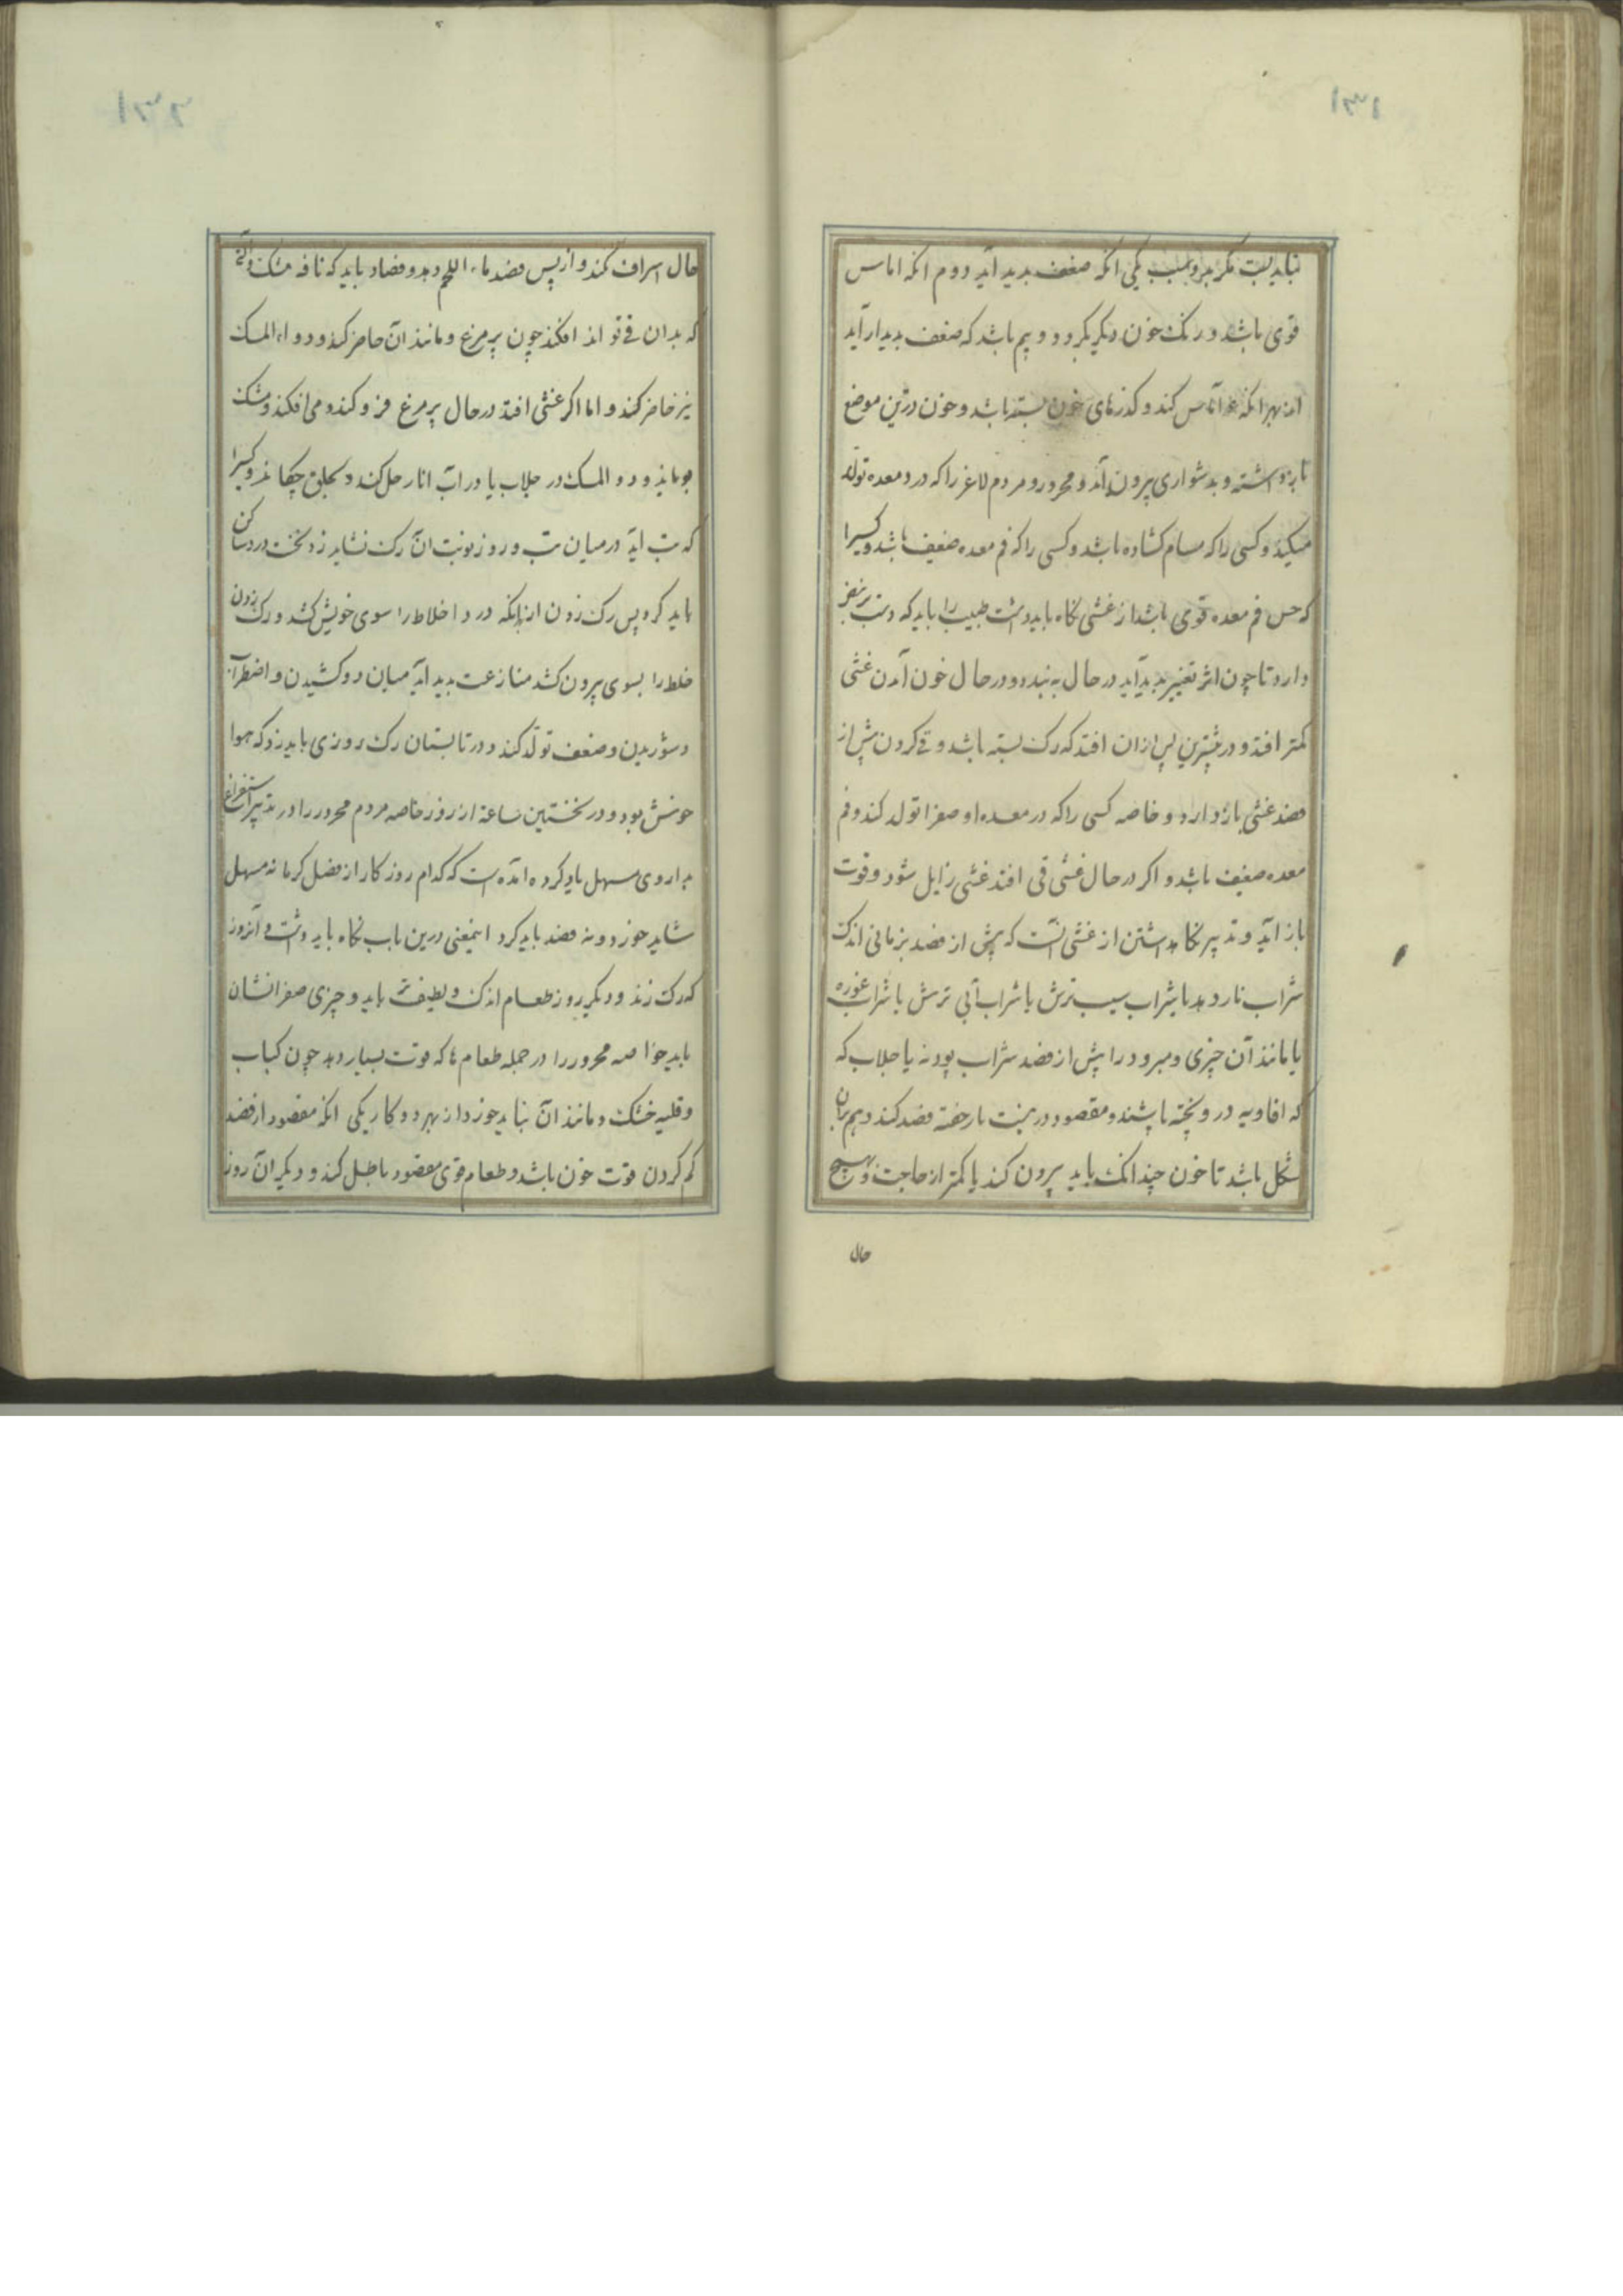 ۱۳۱
نباید بست مگر بدو سبب یکی انکه ضعف بدید آید دوم انکه اماس
قوی باشد و رنک خون دیکر نکردد و بیم باشد که ضعف بدیدار آید
از بهر انکه اماس کند و کذرهای خون بسته باشد و خون درین موضع
باز داشته و بدشواری بیرون آید و محرور و مردم لاغر را که درد معده تولد
میکند و کسی را که مسام کشاده باشد و کسی را که فم معده ضعیف باشد و کسیرا
که حس فم معده قوی باشد از غشی نکاه باید داشت طبیب را باید که دست بر نبض
دارد تا چون اثر تغییر بدید آید در حال به بندد و در حال خون آمدن غشی
کمتر افتد و در بیشترین پس ازان افتد که رک بسته باشد و قی کردن پیش از
فصد غشی باز دارد و خاصه کسی را که در معده او صفرا تولد کند و فم
معده ضعیف باشد و اکر در حال غشی قی افتد غشی زایل شود و قوت
باز آید و تدبیر نکاه داشتن از غشی آنست که پیش از فصد بزمانی اندک
شراب نار دهد یا شراب سیب ترش یا شراب آبی ترش یا شراب غوره
یا مانند آن چیزی و مبرود را پیش از فصد شراب پودنه یا جلاب که
که افاویه درو پخته باشند و مقصود در پشت باز خفته فصد کند و هم بران
شکل باشد تا خون چندانک باید بیرون کند یا کمتر از حاجت و بهیچ
حال
۱۳۲
حال اسراف نکند و از پس فصد ماء اللحم دهد و فصاد باید که نافه مشک و آلتی
که بدان قی تواند افکند چون پر مرغ و مانند آن حاضر کند و دواء المسک
نیز حاضر کند و اما اکر غشی افتد در حال پر مرغ فرو کند و می افکند و مشک
بویاند و دوا المسک در جلاب یا در آب انار حل کند و بحلق چکاند و کسیرا
که تب آید در میان تب و روز نوبت آن رک نشاید زد نخست درد ساکن
باید کرد پس رک زدن ازانکه درد اخلاط را سوی خویش کشد و رک زدن
خلط را بسوی بیرون کشد منازعت بدید آید میان دو کشیدن و اضطراب
و شوریدن و ضعف تولد کند و در تابستان رک روزی باید زد که هوا
خوش بود و در نخستین ساعة از روز خاصه مردم محرور را و در تدبیر استفراغ
بداروی مسهل یاد کرده آمده است که کدام روز کار از فصل کرما نه مسهل
شاید خورد و نه فصد باید کرد اینمعنی درین باب نکاه باید داشت و آنروز
که رک زند و دیکر روز طعام اندک و لطیف تر باید و چیزی صفرا نشان
باید خواصه محرور را در جمله طعام ها که قوت بسیار دهد چون کباب
و قلیه خشک و مانند آن نباید خورد از بهر دو کار یکی انکه مقصود از فصد
کم کردن قوت خون باشد و طعام قوی مقصود باطل کند و دیکر آن روز